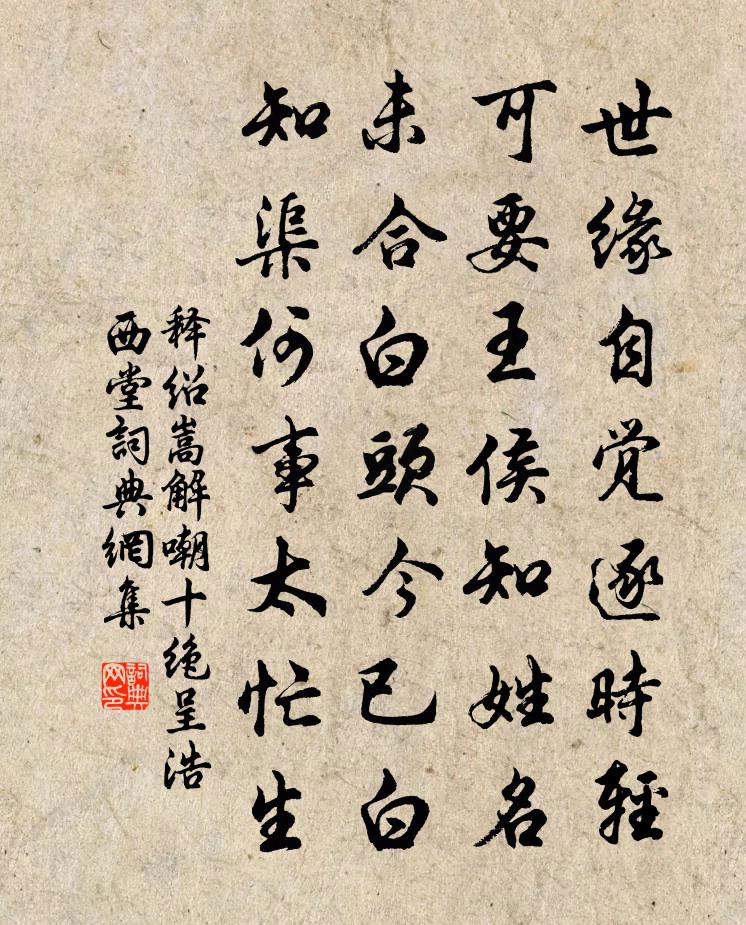 世缘自觉逐時輕
可要王侯知姓名
未合白頭今已白
知渠何事太忙生
释绍嵩解嘲十绝呈浩
西堂詞典網集
詞典网印